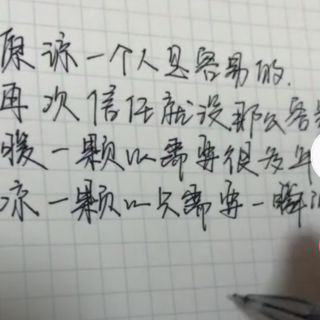 原谅一个人是容易的.
再次信任就没那么容易
暖一颗心需要很多年
凉一颗心只需要一瞬